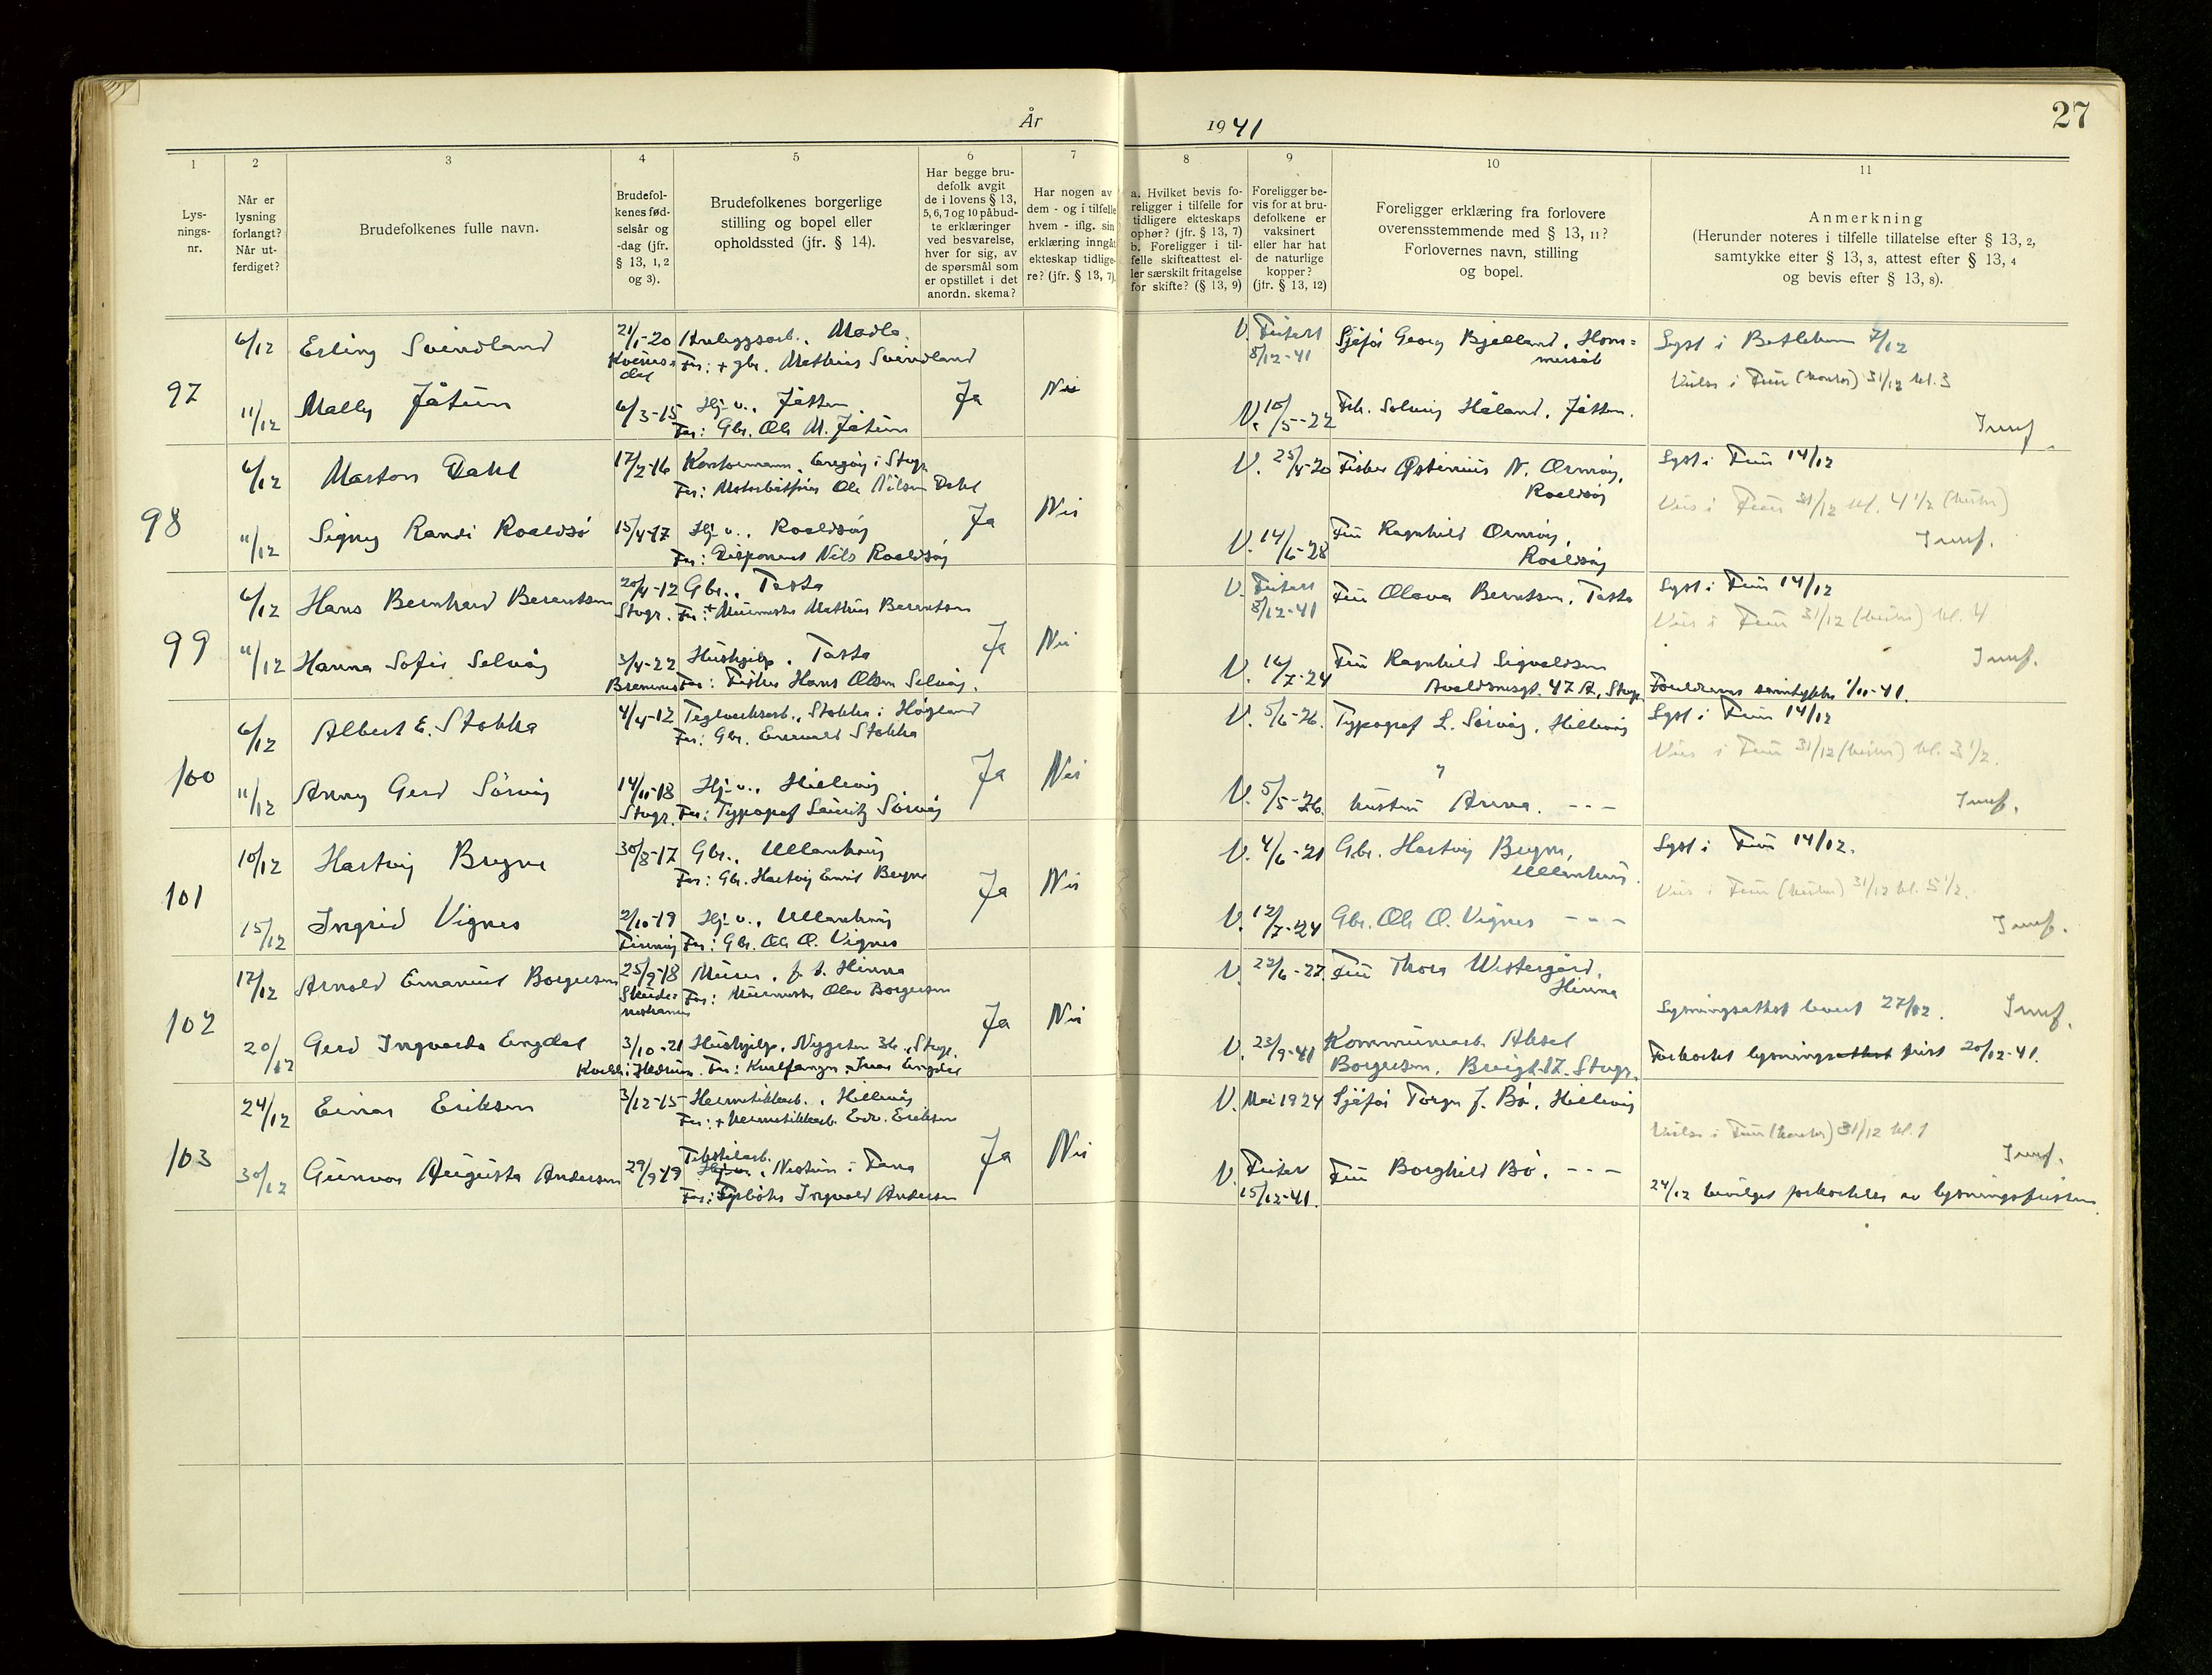 27
År 1941
1 2 3 4 5 6 7 8 9 10 11
Lys-
nings-
nr.
Når er
lysning
forlangt?
Når ut-
ferdiget?
Brudefolkenes fulle navn.
Brudefol-
kenes fød-
selsår og
-dag (jfr.
§ 13, 1, 2
og 3).
Brudefolkenes borgerlige
stilling og bopel eller
opholdssted (jfr. § 14).
Har begge bru-
defolk avgit
de i lovens § 13,
5, 6, 7 og 10 påbud-
te erklæringer
ved besvarelse,
hver for sig, av
de spørsmål som
er opstillet i det
anordn. skema?
Har nogen av
dem - og i tilfelle
hvem - iflg. sin
erklæring inngåt
ekteskap tidlige-
re? (jfr. § 13, 7).
a. Hvilket bevis fo-
religger i tilfelle for
tidligere ekteskaps
ophør? (jfr. § 13, 7)
b. Foreligger i til-
felle skifteattest el-
ler særskilt fritagelse
for skifte? (§ 13, 9)
Foreligger be-
vis for at bru-
defolkene er
vaksinert
eller har hat
de naturlige
kopper?
(jfr. § 13, 12)
Foreligger erklæring fra forlovere
overensstemmende med § 13, 11?
Forlovernes navn, stilling
og bopel.
Anmerkning
(Herunder noteres i tilfelle tillatelse efter § 13, 2,
samtykke efter § 13, 3, attest efter § 13, 4
og bevis efter § 13, 8).
97
6/12 Erling Svindland 21/1-20 Anleggsarb., Madla.
Far: + gbr. Mathias Svindland
11/12 Mally Jåtun 6/3-15 Hj. v., Jåtten
Far: Gbr. Ole M. Jåtun
Ja Nei
V. Attest 8/12-41 Sjåfør Georg Bjelland, Hom-
mersåk
V. 10/5-22 Frk. Solveig Håland, Jåtten.
Lyst i Betlehem 7/12
Vielse i Frue (kontor) 31/12 kl. 3
98
6/12 Marton Dahl 17/2-16 Kontormann, Engøy i Stvgr.
Far: Motorbåtfører Ole Nilsen Dahl
11/12 Signy Randi Roaldsø 15/4-17 Hj. v., Roaldsøy
Far: Disponent Nils Roaldsøy
Ja Nei
V. 25/4-20 Fisker Østenius N. Ormøy,
Roaldsøy
V. 14/6-28 Fru Ragnhild Ormøy,
Roaldsøy
Lyst i Frue 14/12
Vies i Frue 31/12 kl. 4 1/2
99
6/12 Hans Bernhard Berentsen 20/4-12 Gbr., Tasta
Stvgr. Far: + Murmester Mathias Berentsen
11/12 Hanna Sofie Selvåg 3/4-22 Hushjelp, Tasta
Far: Fisker Hans Olsen Selvåg.
Ja Nei
V. 8/12-41 Fru Olava Berntsen, Tasta
V. 16/7-24 Fru Ragnhild Sigvaldsen
47 A, Stvgr.
Lyst i Frue 14/12
Vies i Frue 31/12 kl. 4
Foreldrenes samtykke 1/11-41.
100
6/12 Albert E. Stokka 4/4-12 Teglverksarb., Stokka i Høyland
Far: Gbr. Enevald Stokka
11/12 Anny Gerd Sørvåg 14/11-18 Hj. v., Hillevåg
Stvgr. Far: Typograf Lauritz Sørvåg
Ja Nei
V. 5/6-26. Typograf L. Sørvåg, Hillevåg
V. 5/5-26. " hustru Anna. - - -
Lyst i Frue 14/12
Vies i Frue 31/12 kl. 3 1/2.
101
10/12 Hartvig Bryne 30/8-17 Gbr., Ullanhaug
Far: Gbr. Hartvig Emil Bryne
15/12 Ingrid Vignes 2/10-19 Hj. v., Ullanhaug
Finnøy Far: Gbr. Ole O. Vignes
Ja Nei
V. 4/6-21 Gbr. Hartvig Bryne,
Ullanhaug.
V. 12/7-24 Gbr. Ole O. Vignes - - -
Lyst i Frue 14/12.
Vies i Frue 31/12 kl. 5 1/2.
102
17/12 Arnold Emanuel Borgersen 25/9-18 Murer, f. t. Hinna
Far: Murmester Olav Borgersen
20/12 Gerd Ingvarda Engdal 3/10-21 Hushjelp, Nygaten 36, Stvgr.
Far: Hvalfanger Ivar Engdal
Ja Nei
V. 22/6-22. Fru Thora Westergård,
Hinna
V. 23/9-41 Kommunearb. Aksel
Borgersen, 17. Stvgr.
Lysningsattest levert 27/12.
Forkortet lysningsattest frist 20/12-41.
103
24/12 Einar Eriksen 3/12-15 Hermetikkarb., Hillevåg
Far: + Hermetikkarb. Edv. Eriksen
30/12 Gunvor Augusta Andersen 29/9-19 Tekstilarb. Hj. v., Nestun i Fana
Far: Ingvald Andersen
Ja Nei
V. Mai 1924 Sjåfør Torger J. Bø, Hillevåg
V. Attest 15/12-41. Fru Borghild Bø. - - -
Vielse i Frue (kontor) 31/12 kl. 1
24/12 bevilget forkortelse av lysningsfristen